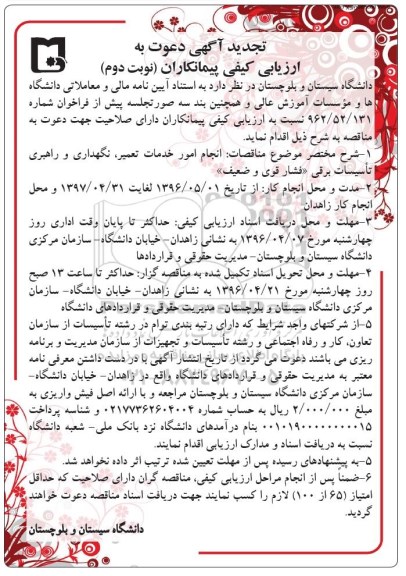 تجدید آگهی دعوت به
ارزیابی کیفی پیمانکاران (نوبت دوم)
دانشگاه سیستان و بلوچستان در نظر دارد به استناد آیین نامه مالی و معاملاتی دانشگاه
ها و مؤسسات آموزش عالی و همچنین بند سه صورتجلسه پیش از فراخوان شماره
۹۶۲/۵۲/۱۳۱ نسبت به ارزیابی کیفی پیمانکاران دارای صلاحیت جهت دعوت به
مناقصه به شرح ذیل اقدام نماید.
۱-شرح مختصر موضوع مناقصات: انجام امور خدمات تعمیر، نگهداری و راهبری
تأسیسات برقی «فشار قوی و ضعیف»
۲-مدت و محل انجام کار: از تاریخ ۱۳۹۶/۰۵/۰۱ لغایت ۱۳۹۷/۰۴/۳۱ و محل
انجام کار زاهدان
۳-مهلت و محل دریافت اسناد ارزیابی کیفی: حداکثر تا پایان وقت اداری روز
چهارشنبه مورخ ۱۳۹۶/۰۴/۰۷ به نشانی زاهدان-خیابان دانشگاه- سازمان مرکزی
دانشگاه سیستان و بلوچستان- مدیریت حقوقی و قراردادها
۴-مهلت و محل تحویل اسناد تکمیل شده به مناقصه گزار: حداکثر تا ساعت ۱۳ صبح
روز چهارشنبه مورخ ۱۳۹۶/۰۴/۲۱ به نشانی زاهدان- خیابان دانشگاه- سازمان
مرکزی دانشگاه سیستان و بلوچستان- مدیریت حقوقی و قراردادهای دانشگاه
۵-از شرکتهای واجد شرایط که دارای رتبه بندی توام در رشته تأسیسات از سازمان
تعاون، کار و رفاه اجتماعی و رشته تأسیسات و تجهیزات از سازمان مدیریت و برنامه
ریزی می باشند دعوت می گردد از تاریخ انتشار آگهی با در دست داشتن معرفی نامه
معتبر به مدیریت حقوقی و قراردادهای دانشگاه واقع در زاهدان- خیابان دانشگاه-
سازمان مرکزی دانشگاه سیستان و بلوچستان مراجعه و با ارائه اصل فیش واریزی به
مبلغ ۲/۰۰۰/۰۰۰ ریال به حساب شماره ۰۲۱۷۷۳۶۲۶۰۴۰۰۴ و شناسه پرداخت
بنام درآمدهای دانشگاه نزد بانک ملی- شعبه دانشگاه
نسبت به دریافت اسناد و مدارک ارزیابی اقدام نمایند.
۵-به پیشنهادهای رسیده پس از مهلت تعیین شده ترتیب اثر داده نخواهد شد.
۶-ضمناً پس از انجام مراحل ارزیابی کیفی، مناقصه گران دارای صلاحیت که حداقل
امتیاز (۶۵ از ۱۰۰) لازم را کسب نمایند جهت دریافت اسناد مناقصه دعوت خواهند
گردید.
دانشگاه سیستان و بلوچستان